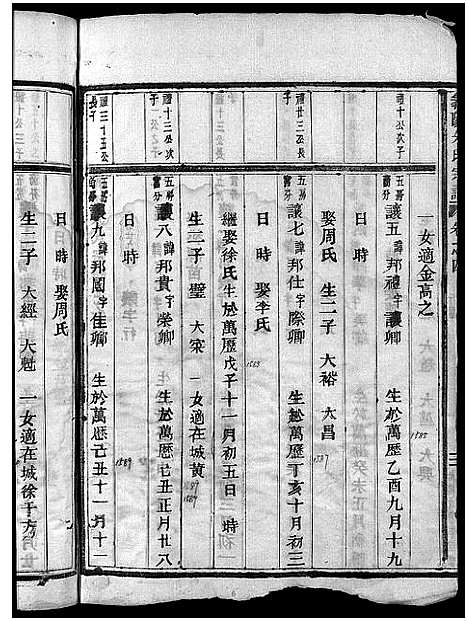 一女適金高之
禮十公次子
五房
讓五 諱邦禮 字讓卿 生於萬曆乙酉九月十九
1585
娶周氏 生二子 大裕 大昌
禮廿三公長子
讓七 諱邦 字際卿 生於萬曆丁亥十月初三
1587
日 時 娶李氏
繼娶徐氏生於萬曆戊子十一月初五日 時
禮十三公次子
五房
讓八 諱邦貴 字榮卿 生於萬曆己丑正月廿八
1589
生二子 大璧 大宋 一女適在城黃
日 時
禮三十五公長子
五房
讓九 諱邦國 字佳卿 生於萬曆己丑十一月十一
1589
日 時 娶周氏
生二子 大經 大魁 一女適在城徐于方